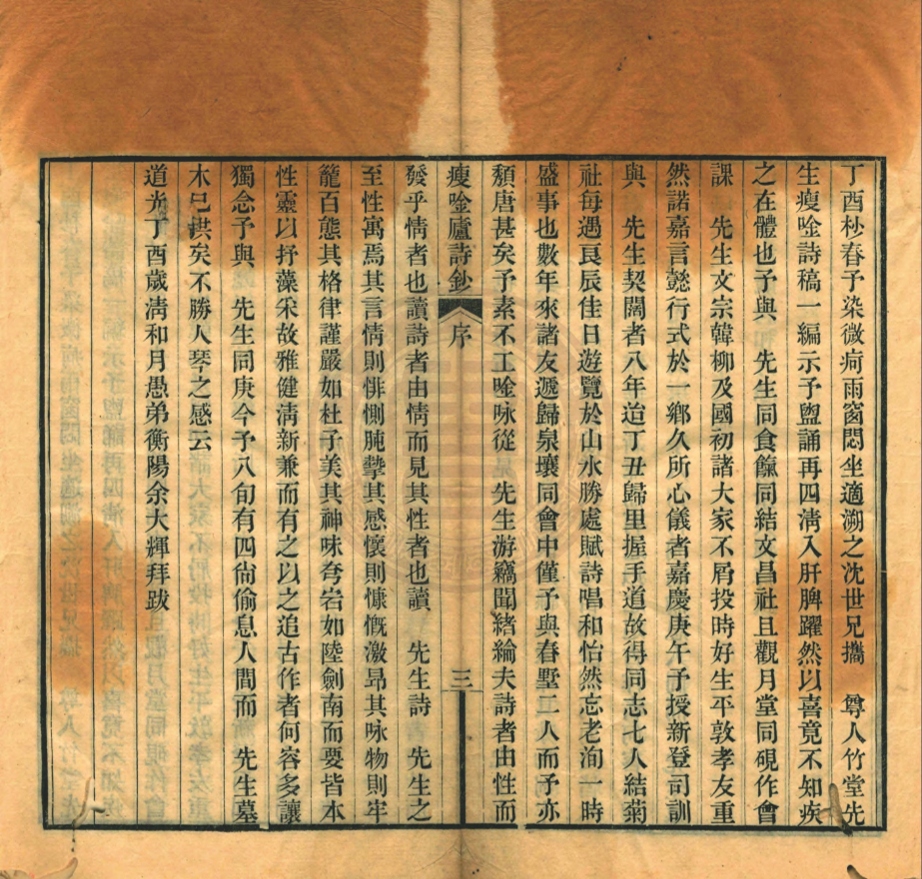 丁酉杪春予染微疴雨窗悶坐適溯之沈世兄攜　尊人竹堂先
生瘦唫詩稿一編示予盥誦再四淸入肝脾躍然以喜竟不知疾
之在體也予與　先生同食餼同結文昌社且觀月堂同硯作會
課　先生文宗韓柳及國初諸大家不屑投時好生平敦孝友重
然諾嘉言懿行式於一鄉久所心儀者嘉慶庚午予授新登司訓
與　先生契闊者八年迨丁丑歸里握手道故得同志七人結菊
社每遇良辰佳日遊覽於山水勝處賦詩唱和怡然忘老洵一時
盛事也數年來諸友遞歸泉壤同會中僅予與春墅二人而予亦
頹唐甚矣予素不工唫咏從　先生游竊聞緒綸夫詩者由性而
瘦唫廬詩鈔　序　三
發乎情者也讀詩者由情而見其性者也讀　先生詩　先生之
至性寓焉其言情則悱惻肫摯其感懷則慷慨激昻其咏物則牢
籠百態其格律謹嚴如杜子美其神味夸岩如陸劍南而要皆本
性靈以抒藻采故雅健淸新兼而有之以之追古作者何容多讓
獨念予與　先生同庚今予八旬有四尙偷息人間而　先生墓
木已拱矣不勝人琴之感云
道光丁酉歲淸和月愚弟衡陽余大輝拜跋